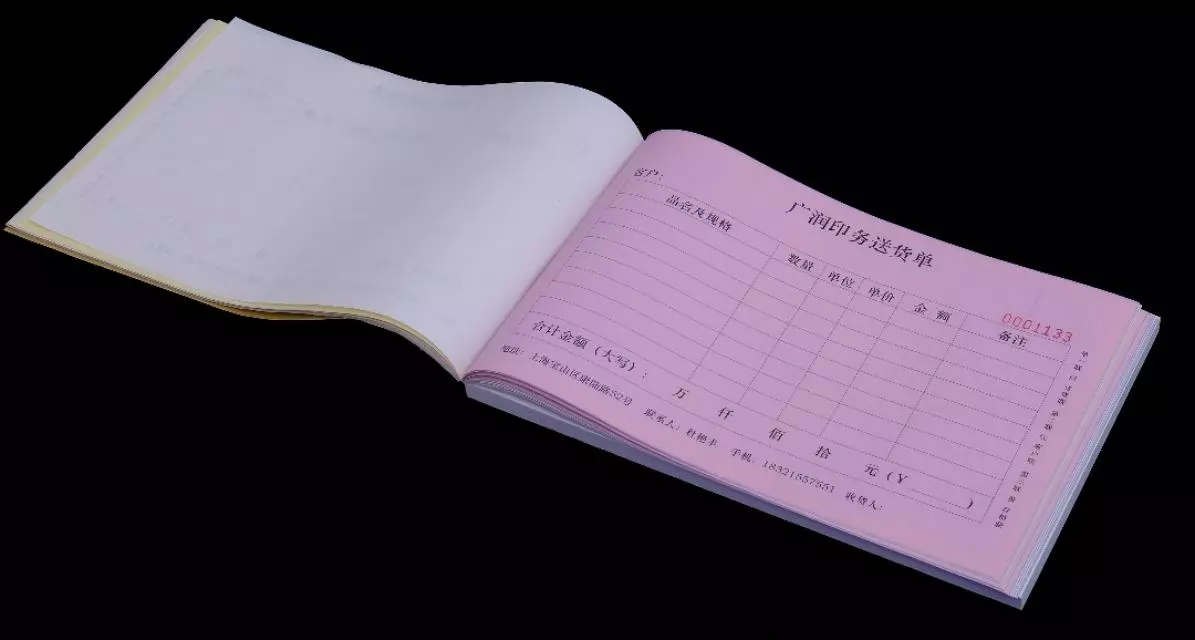 广润印务送货单
客户:
0001133
品名及规格 数量 单位 单价 金额 备注
合计金额(大写): 万 仟 佰 拾 元(¥ )
地址: 上海宝山区康陆路52号 联系人: 杜艳丰 手机: 18321557551 收货人: